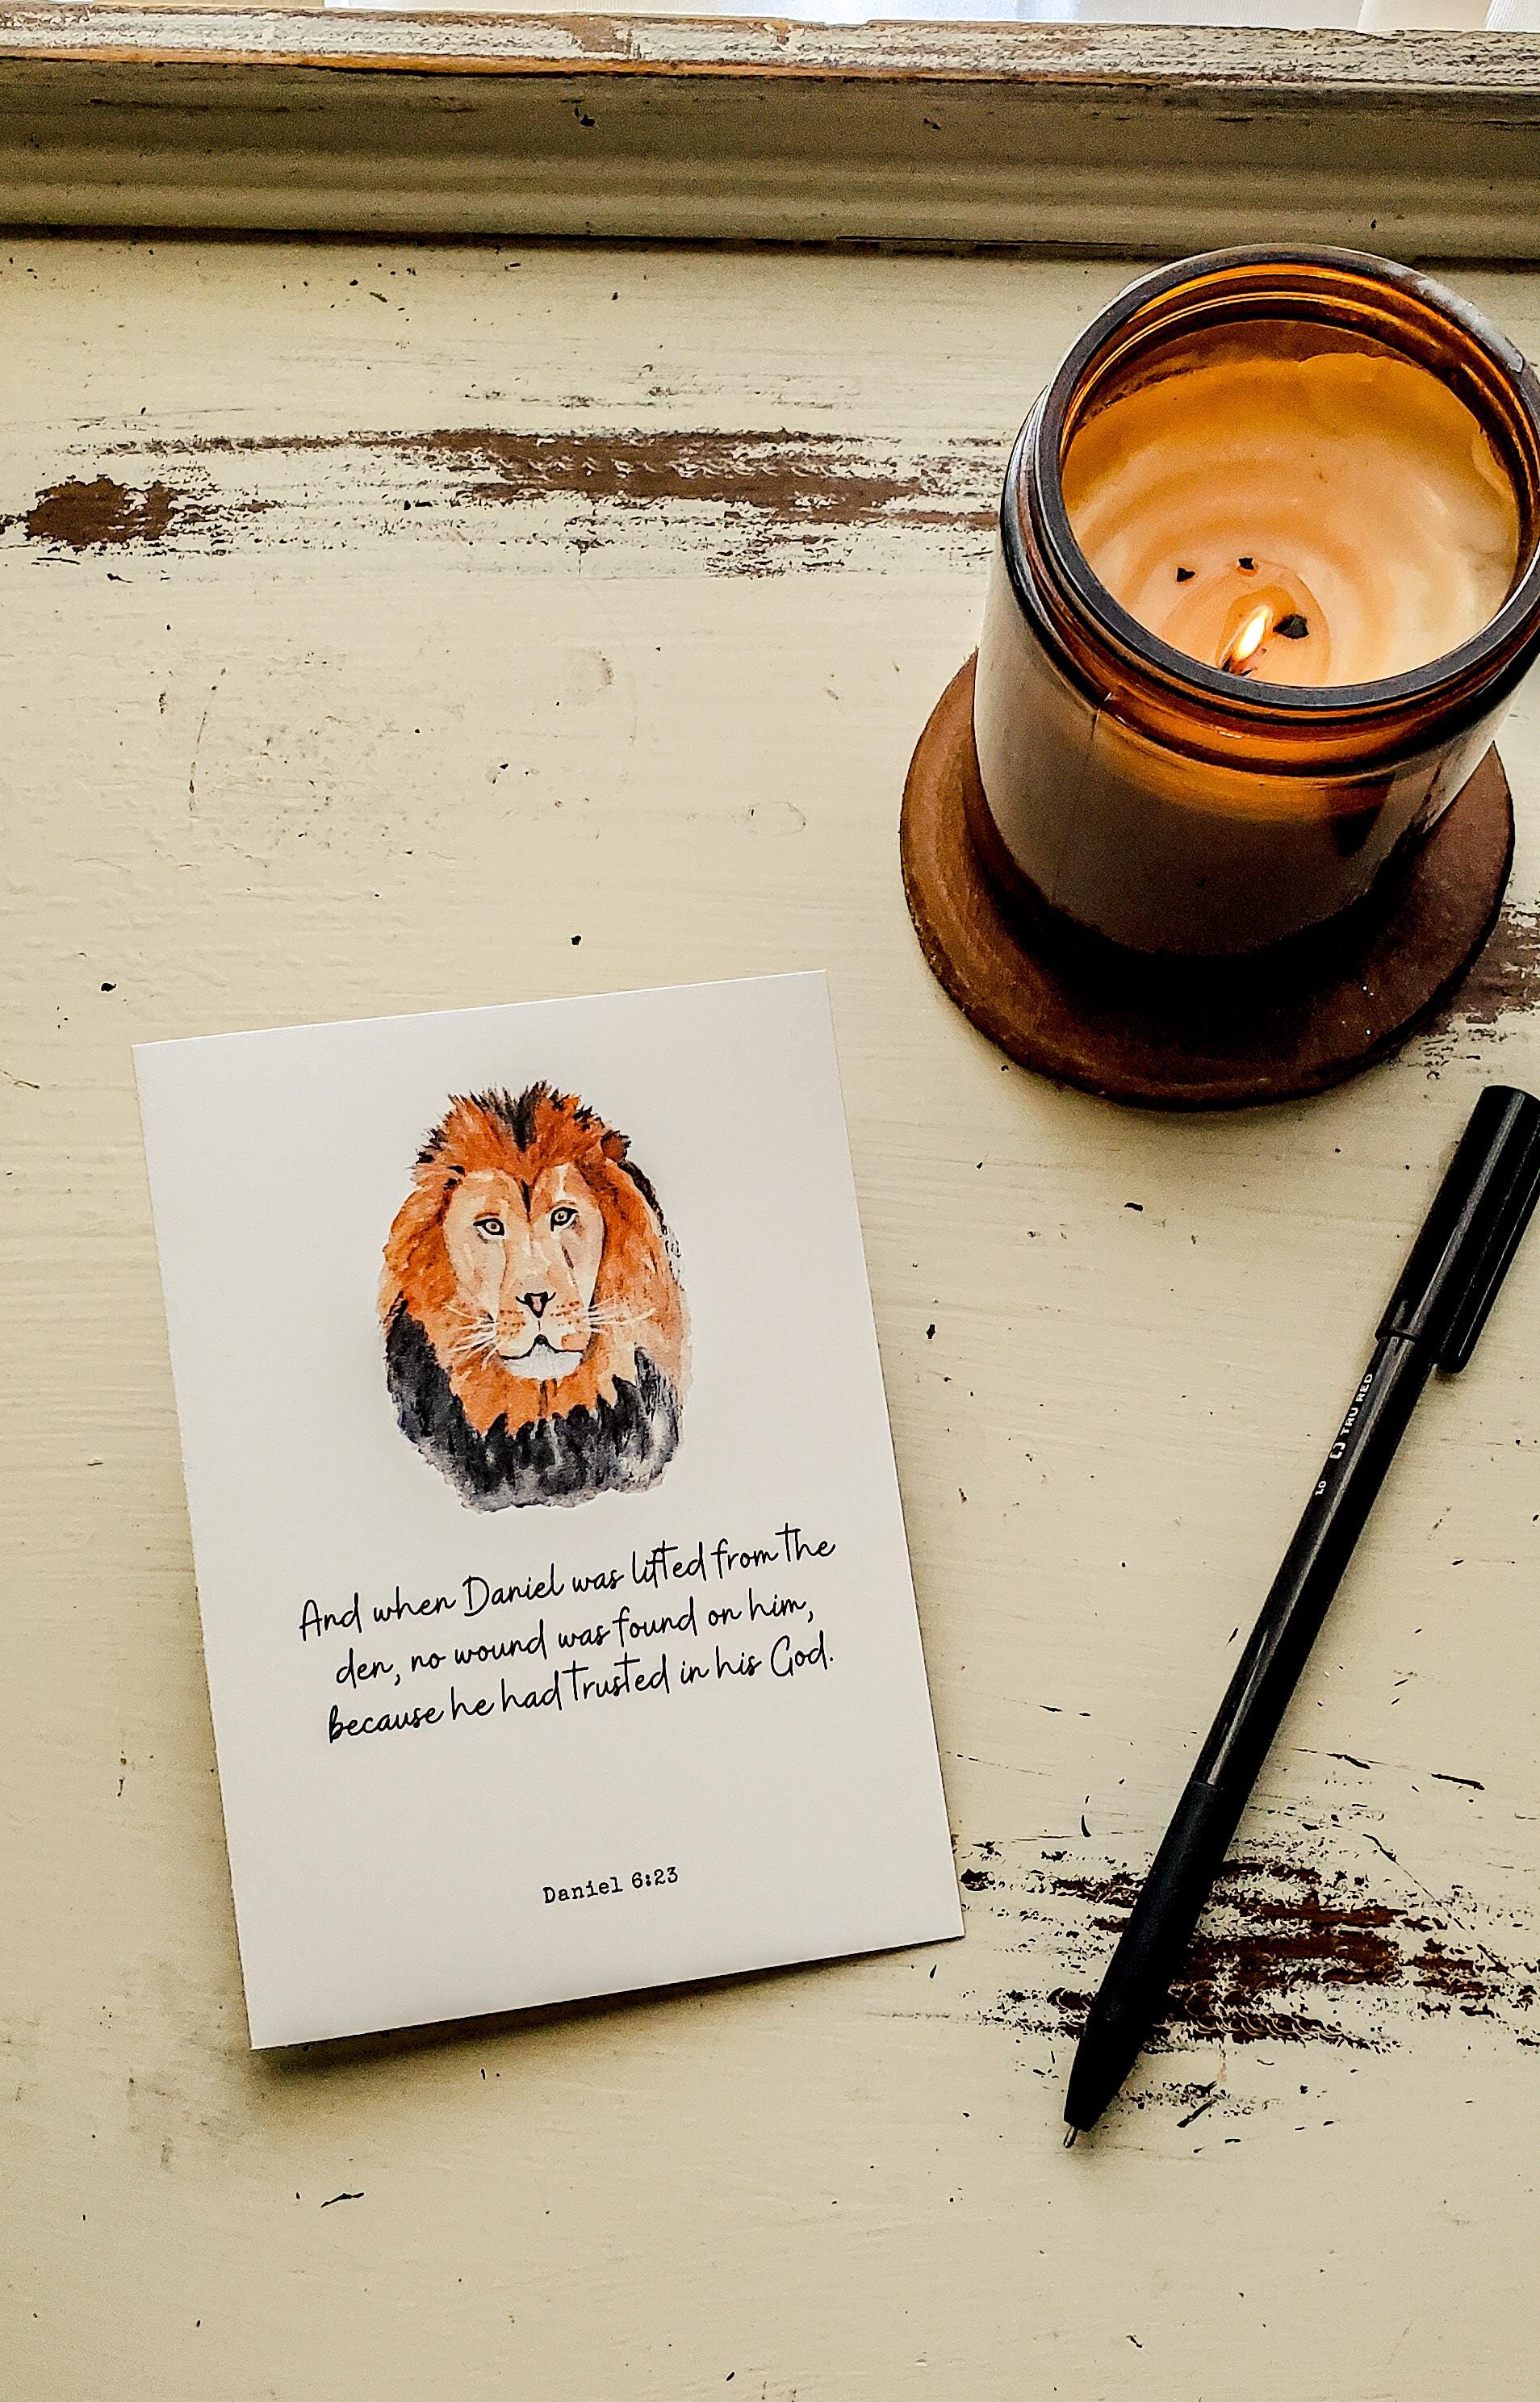 And when Daniel was lifted from the
den, no wound was found on him,
because he had trusted in his God.
Daniel 6:23
TRU RED
1.0